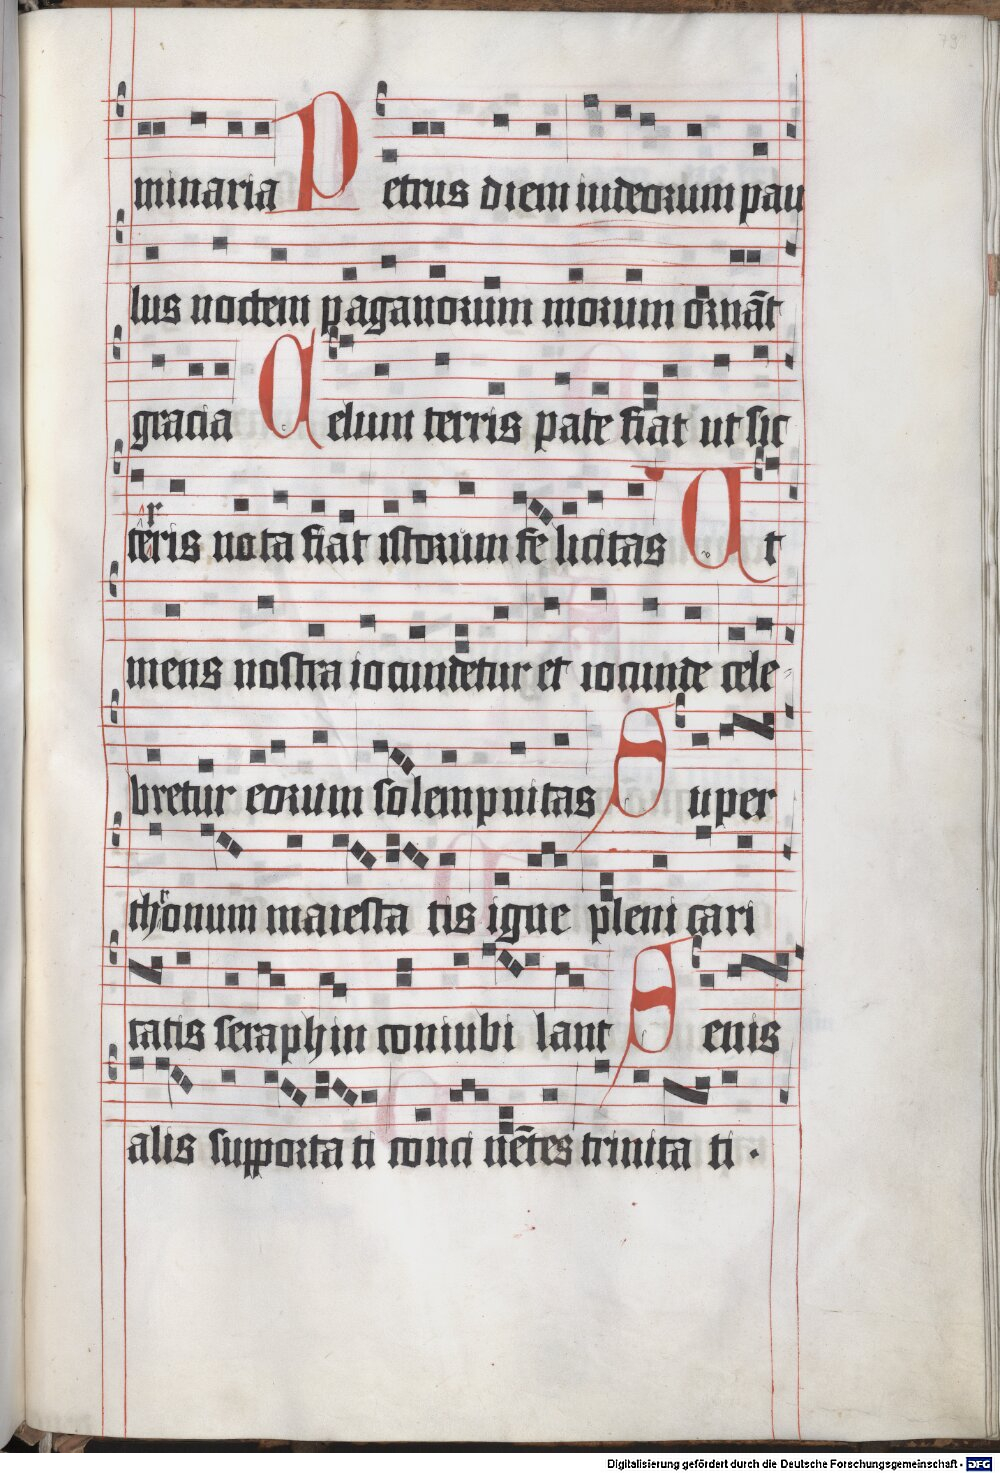 79
minaria Petrus diem iudeorum pau
lus noctem paganorum morum ornāt
gracia Celum terris pate fiat ut sic
terris nota fiat istorum fe licitas Ut
mens nostra iocundetur et iocunde cele
bretur eorum solempnitas Super
thronum maiesta tis igne pleni cari
tatis seraphin coniubi lant Senis
alis supporta ti conci nētes trinita ti .
Digitalisierung gefördert durch die Deutsche Forschungsgemeinschaft - DFG